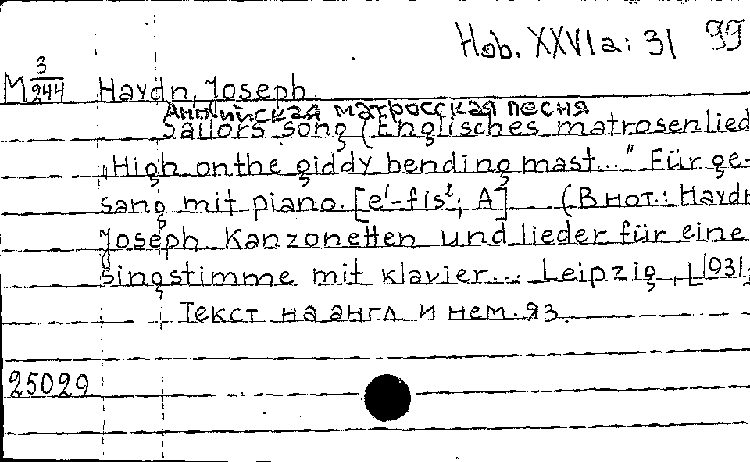 Hob. XXVIa: 31 99
M 3/244 Haydn, Joseph
Английская матросская песня
Sailors song (Englisches matrosenlied
„High on the giddy bending mast..." Für ge-
sang mit piano. [e¹-fis²; A] (В нот.: Haydn
Joseph. Kanzonetten und lieder für eine
singstimme mit klavier... Leipzig, [1931,
Текст на англ и нем. яз.
25029